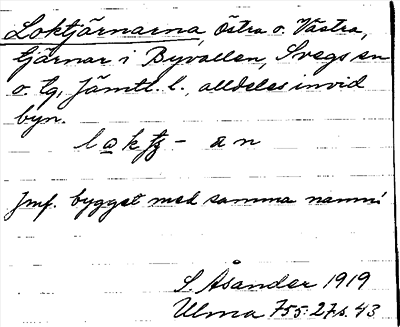 Loktjärnarna, Östra o. Västra,
tjärnar i Byvallen, Svegs sn
o. tg, Jämtl. l., alldeles invid
byn.
Jmf. bygget med samma namn!
S. Åsander 1919
Ulma 755:27 s. 43